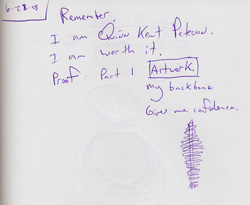 6-28-8
Remember.
I am Quinn Kent Peterson.
I am worth it.
Proof: Part 1 Artwork.
my backbone
Gives me confidence.